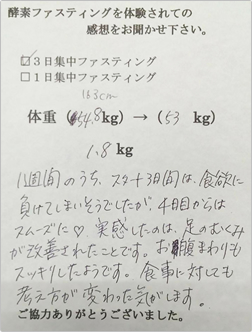 酵素ファスティングを体験されての
感想をお聞かせ下さい。
☑3日集中ファスティング
□1日集中ファスティング
163cm
体重(54.8kg)→(53 kg)
1.8 kg
1週間のうち、スタート3日間は、食欲に
負けてしまいそうでしたが、4日目からは
スムーズに♡。実感したのは、足のむくみ
が改善されたことです。お腹まわりも
スッキリしたようです。食事に対しても
考え方が変わった気がします。
ご協力ありがとうございました。